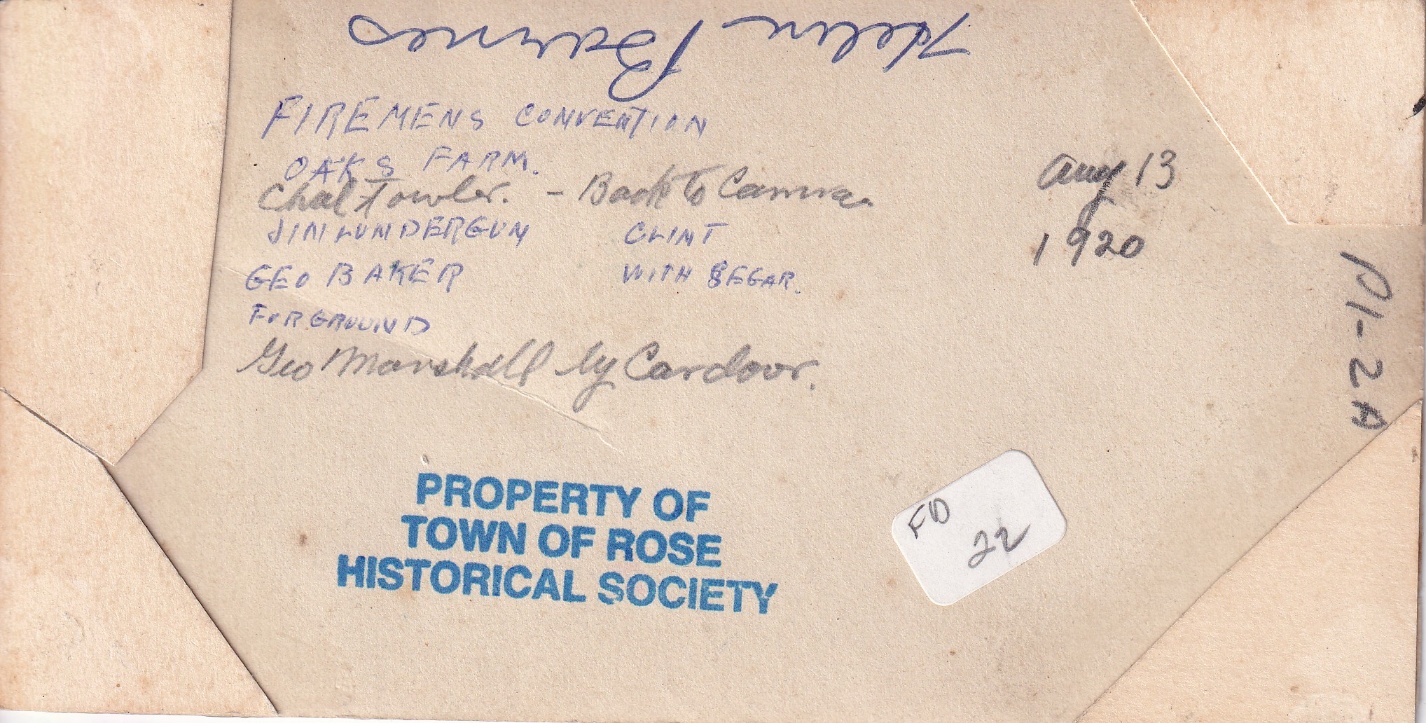 Helen Barnes
FIREMENS CONVENTION
OAKS FARM.
Chal Fowler. - Back to Camera
JIM LUNDERGUN CLINT
GEO BAKER WITH SEGAR.
FORGROUND
Geo Marshall by Car door.
Aug 13
1920
P1-2A
PROPERTY OF
TOWN OF ROSE
HISTORICAL SOCIETY
FD
22